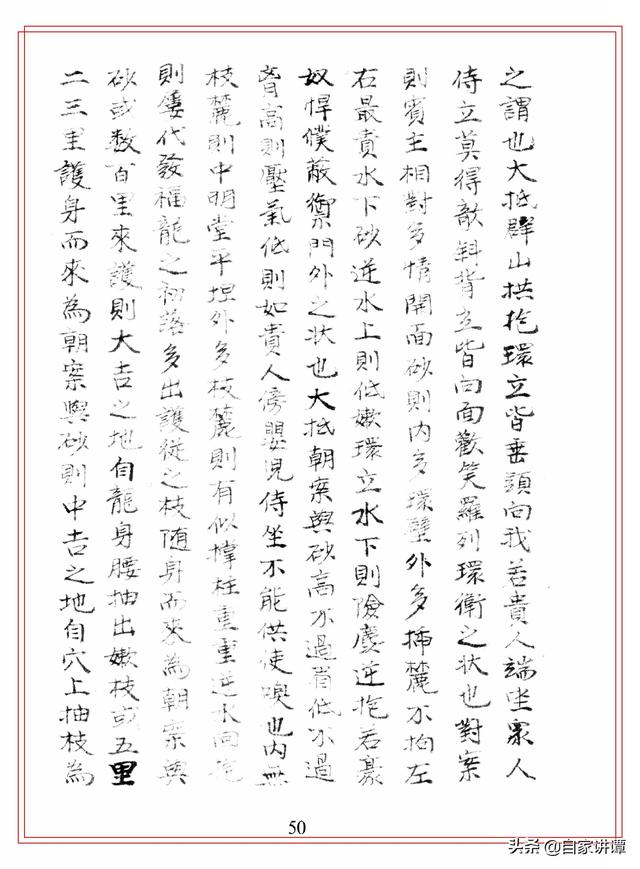 之謂也大抵群山拱抱環立皆垂頭向我若貴人端坐眾人
侍立莫得敵斜背立皆向面歡笑羅列環衛之状也對案
則賓主相對多情開面砂則內多環璧外多插麓不拘左
右最貴水下砂逆水上則低嫩環立水下則險麤逆抱若豪
奴悍僕蔽禦門外之状也大抵朝案與砂高不過眉低不過
脅高則壓氣低則如貴人傍嬰児侍坐不能供使喚也內無
枝麓則中明堂平坦外多枝麓則有似撑柱重重逆水向抱
則屢代發福龍之初落多出護従之枝随身而來為朝案與
砂或数百里來護則大吉之地自龍身腰抽出嫩枝或五里
二三里護身而來為朝案與砂則中吉之地自穴上抽枝為
50
头条 @自家讲谭